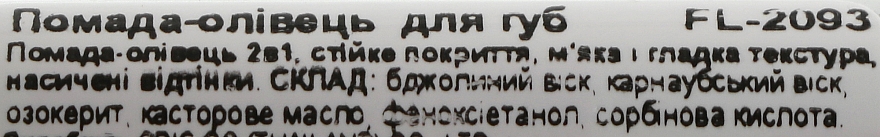 Помада-олівець для губ FL-2093
Помада-олівець 2в1, стійке покриття, м'яка і гладка текстура,
насичені відтінки. СКЛАД: бджолиний віск, карнаубський віск,
озокерит, касторове масло, феноксіетанол, сорбінова кислота.